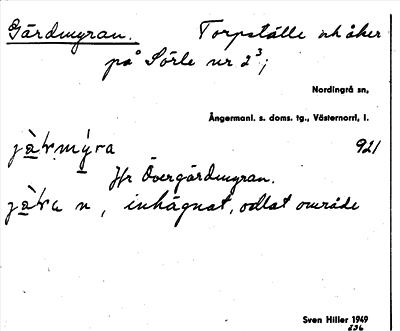 Gärdmyran. Torpställe o håker
på Sörle nr 2³;
Nordingrå sn,
Ångermanl. s. doms. tg., Västernorrl, l.
921
Jfr Övergärdmyran.
n, inhägnat, odlat område
Sven Hiller 1949
236